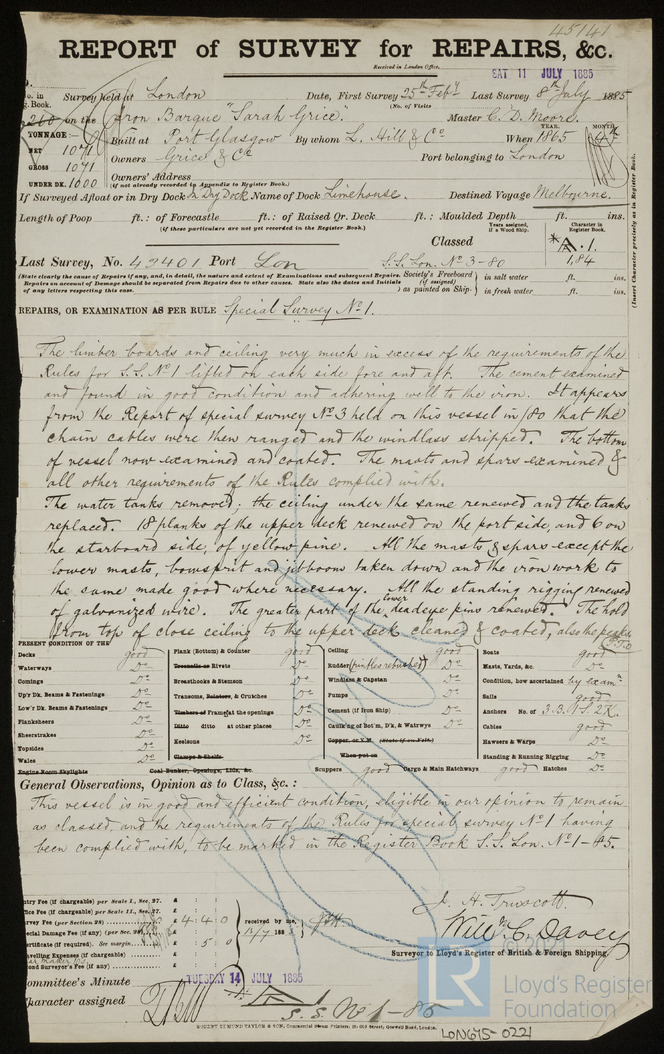 45141
REPORT of SURVEY for REPAIRS, &c.
Received in London Office,
SAT 11 JULY 1885
No. in Survey held at London Date, First Survey 25th Feby Last Survey 8th July 1885
Reg. Book. (No. of Visits
260 on the Iron Barque "Sarah Grice". Master C. D. Moore.
TONNAGE:— Built at Port Glasgow By whom L. Hill & Co When YEAR. 1865 MONTH.
NET 1071 Owners Grice & Co Port belonging to London
GROSS 1071 Owners' Address
UNDER DK. 1000 (if not already recorded in Appendix to Register Book.)
If Surveyed Afloat or in Dry Dock In Dry Dock Name of Dock Limehouse. Destined Voyage Melbourne.
Length of Poop ft.: of Forecastle ft.: of Raised Qr. Deck ft.: Moulded Depth ft. ins.
(if these particulars are not yet recorded in the Register Book.)
Years assigned, if a Wood Ship. Character in Register Book.
Classed * A. 1.
Last Survey, No. 42401 Port Lon S.S. Lon. No 3-80 1,84
(State clearly the cause of Repairs if any, and, in detail, the nature and extent of Examinations and subsequent Repairs. Society's Freeboard in salt water ft. ins.
Repairs on account of Damage should be separated from Repairs due to other causes. State also the dates and Initials (if assigned)
of any letters respecting this case. ) as painted on Ship- in fresh water ft. ins.
(Insert Character precisely as in Register Book.
REPAIRS, OR EXAMINATION AS PER RULE Special Survey No 1.
The limber boards and ceiling very much in excess of the requirements of the
Rules for S.S. No 1 lifted on each side fore and aft. The cement examined
and found in good condition and adhering well to the iron. It appears
from the Report of special survey No 3 held on this vessel in /80 that the
chain cables were then ranged and the windlass stripped. The bottom
of vessel now examined and coated. The masts and spars examined &
all other requirements of the Rules complied with.
The water tanks removed; the ceiling under the same renewed and the tanks
replaced. 18 planks of the upper deck renewed on the port side, and 6 on
the starboard side, of yellow pine. All the masts & spars except the
lower masts, bowsprit and jibboom taken down and the iron work to
the same made good where necessary. All the standing rigging renewed
of galvanized wire. The greater part of the lower deadeye pins renewed. The hold
from top of close ceiling to the upper deck cleaned & coated, also the peaks
P.T.O
PRESENT CONDITION OF THE
Decks good
Waterways Do
Comings Do
Up'r Dk. Beams & Fastenings Do
Low'r Dk. Beams & Fastenings Do
Planksheers Do
Sheerstrakes Do
Topsides Do
Wales Do
Engine Room Skylights
Plank (Bottom) & Counter good
Treenails or Rivets Do
Breasthooks & Stemson Do
Transoms, Pointers, & Crutches Do
Timbers or Frames at the openings Do
Ditto ditto at other places Do
Keelsons Do
Clamps & Shelfs
Coal Bunker, Openings, Lids, &c.
Ceiling good
Rudder (pintles rebushed) Do
Windlass & Capstan Do
Pumps Do
Cement (if Iron Ship) Do
Caulking of Bot'm, D'k, & Watrwys Do
Copper, or Y.M. (State if on Felt.)
When put on
Scuppers good Cargo & Main Hatchways good Hatches Do
Boats good
Masts, Yards, &c. Do
Condition, how ascertained by exam.
Sails good
Anchors No. of 3.B. 1 S. 2 K.
Cables good
Hawsers & Warps Do
Standing & Running Rigging Do
General Observations, Opinion as to Class, &c. :
This vessel is in good and efficient condition, eligible in our opinion to remain
as classed, and the requirements of the Rules for special survey No 1 having
been complied with, to be marked in the Register Book S.S. Lon. No 1-85.
Entry Fee (if chargeable) per Scale I., Sec. 27. £
Office Fee (if chargeable) per Scale II., Sec. 27. £
Survey Fee (per Section 28) £ 4 4 0
Special Damage Fee (if any) (per Sec. 28) £
Certificate (if required). See margin. 5 0
Travelling Expenses (if chargeable) £
Second Surveyor's Fee (if any) £
received by me,
13/7 1885
J. H. Truscott
Willm C. Davey
Surveyor to Lloyd's Register of British & Foreign Shipping.
Committee's Minute TUESDAY 14 JULY 1885
Character assigned * A 1
S.S. No 1-85
MOUNT EDMUND TAYLOR & SON, Commercial Steam Printers,
© 2021
LR
Lloyd's Register
Foundation
LON675-0221